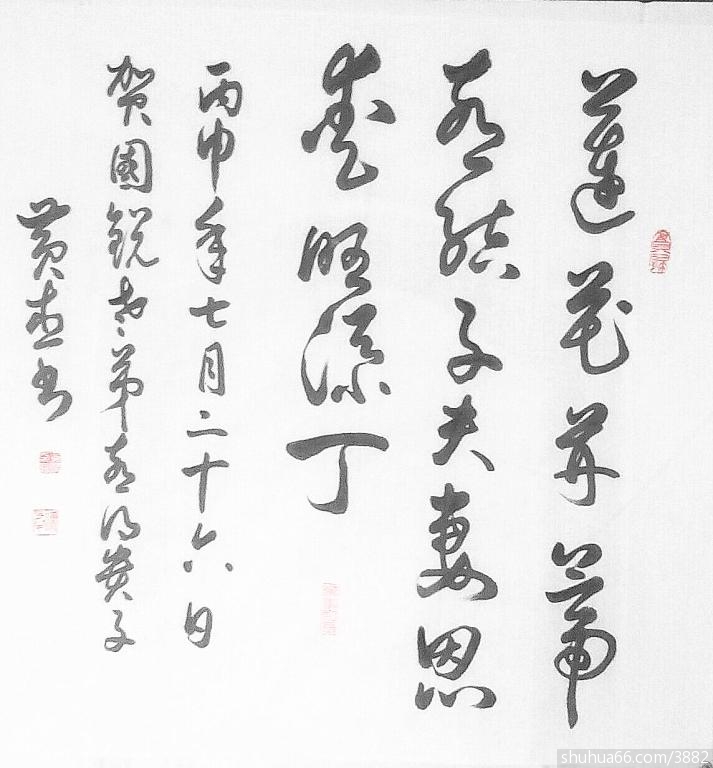 莲花并蒂
喜结子夫妻恩
爱旺添丁
丙申年七月二十六日
贺國锐弟喜得贵子
黄书
shuhua66.com/3882